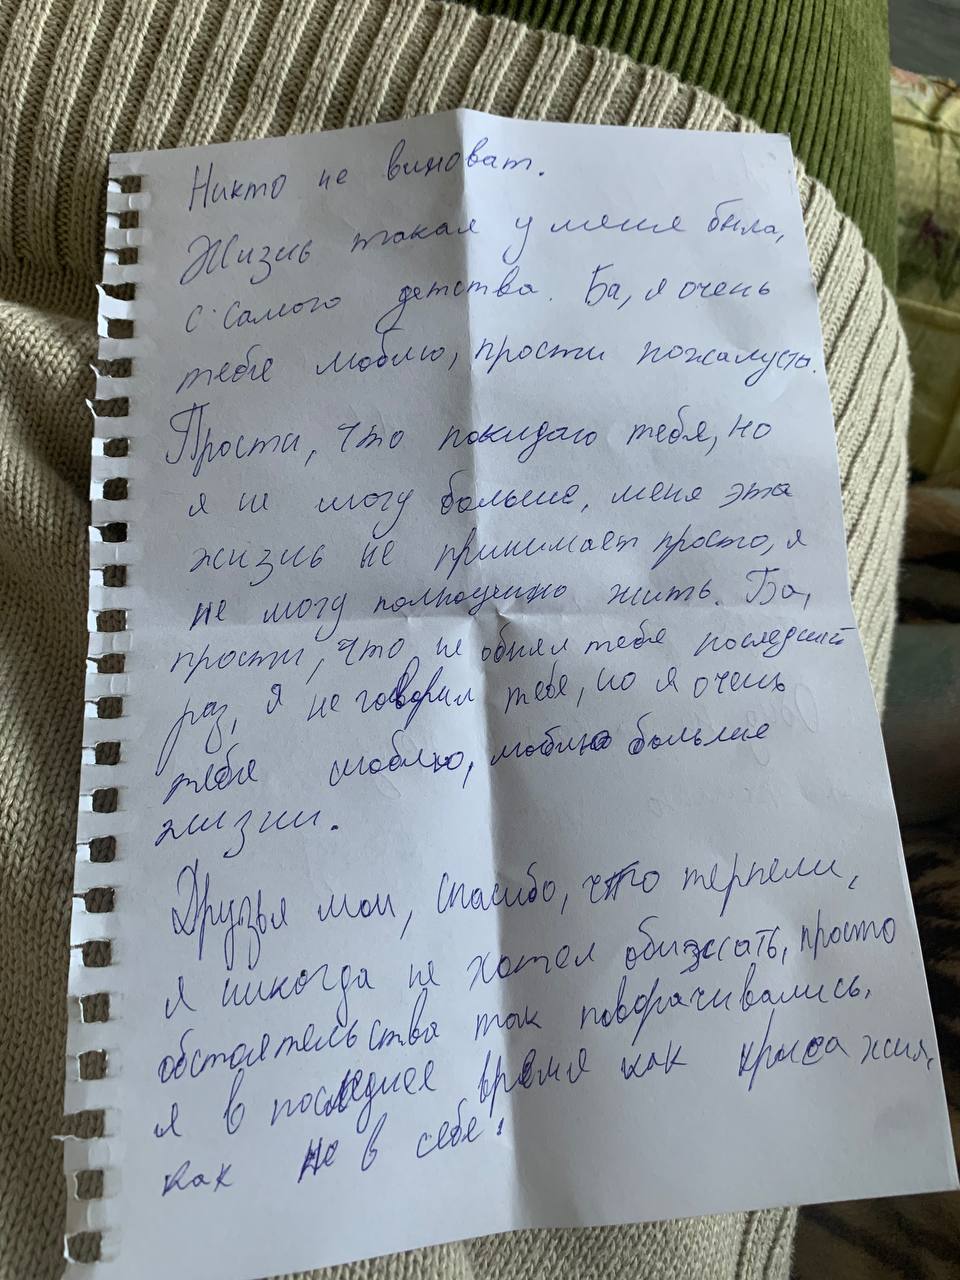 Никто не виноват.
Жизнь такая у меня была,
с самого детства. Ба, я очень
тебя люблю, прости пожалуста.
Прости, что покидаю тебя, но
я не могу больше, меня эта
жизнь не принимает просто, я
не могу полноценно жить. Ба,
прости, что не обнял тебя последний
раз, я не говорил тебе, но я очень
тебя люблю, люблю больше
жизни.
Друзья мои, спасибо, что терпели,
я никогда не хотел обижать, просто
обстоятельства так поворачивались,
я в последнее время как крыса жил,
как не в себе.